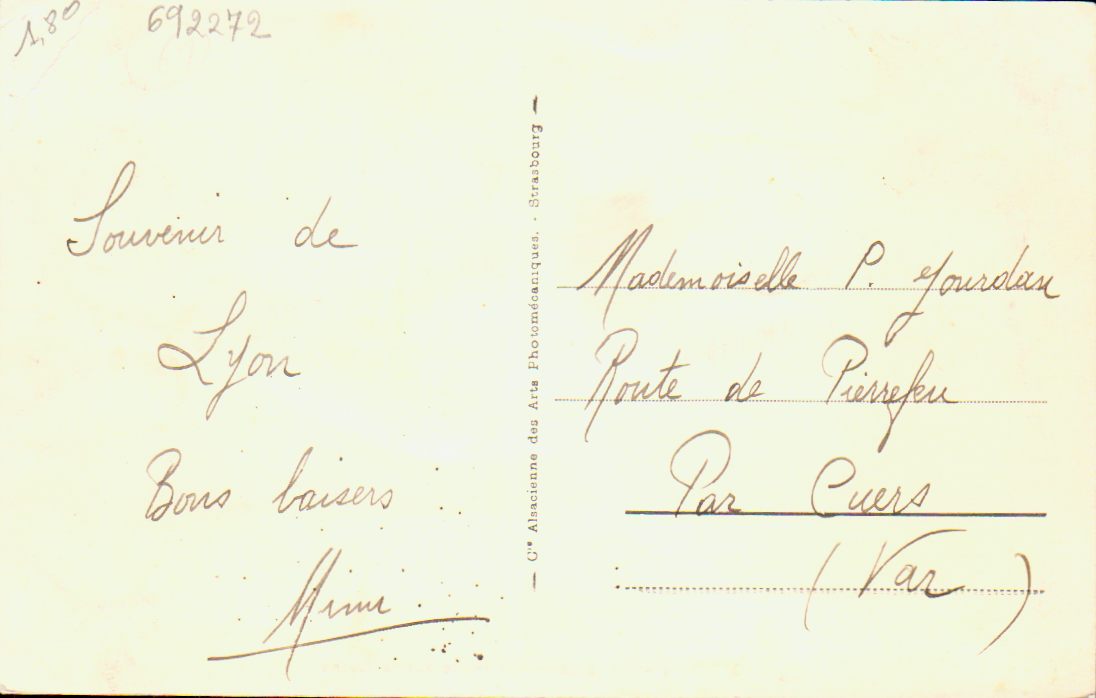 1,80
692272
Souvenir de
Lyon
Bons baisers
Mimi
— Cie Alsacienne des Arts Photomécaniques. - Strasbourg —
Mademoiselle P. Jourdan
Route de Pierrefeu
Par Cuers
(Var)